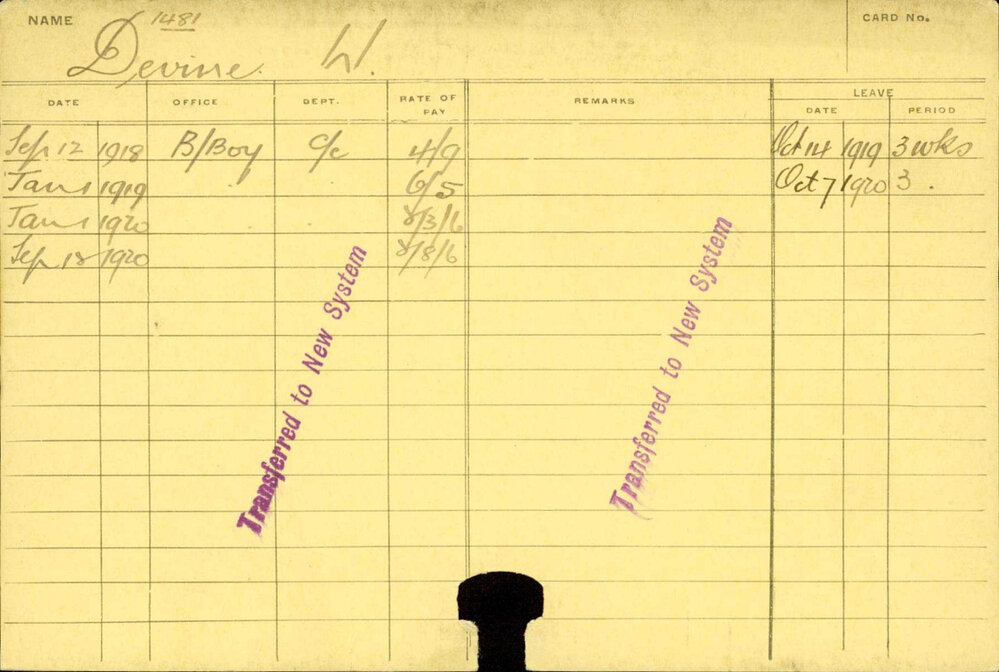 NAME 1481 CARD No.
Devine W.
DATE OFFICE DEPT. RATE OF PAY REMARKS LEAVE
DATE PERIOD
Sep 12 1918 B/Boy C/c 4/9 Oct 14 1919 3 wks
Jan 1 1919 6/5 Oct 7 1920 3.
Jan 1 1920
Sep 18 1920
Transferred to New System
Transferred to New System